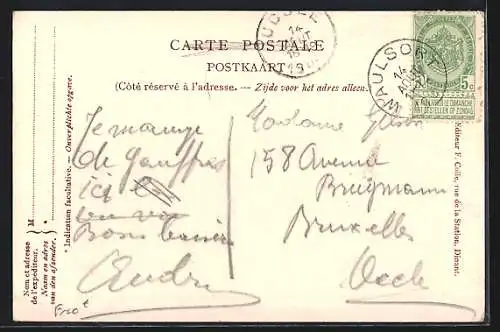 CARTE POSTALE
POSTKAART
(Côté réservé à l'adresse. — Zijde voor het adres alleen.)
UCCLE
14
WAULSORT
14
5c
NE PAS LIVRER LE DIMANCHE
NIET BESTELLEN OP ZONDAG
Je mange
de gauffres
ici
Bons baisers
André
Madame
158 Avenue
Brugmann
Bruxelles
Uccle
M
Nom et adresse
de l'expéditeur.
Naam en adres
van den afzender.
* Indication facultative. — Onverplichte opgave.
Editeur F. Colle, rue de la Station, Dinant.